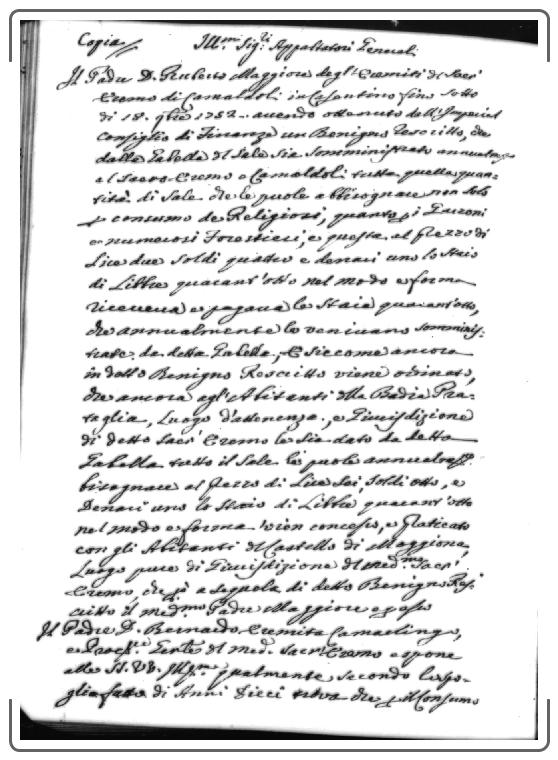 Copia
Ill.mi Sig.ri Appaltatori Generali
Il Padre D. Ruberto Maggiore degl'Eremiti di Sacr'
Eremo di Camaldoli in Casentino fino sotto
di 18. 9bre 1752. avendo ottenuto dall'Imperial
Consiglio di Finanze un Benigno Rescritto, che
dalla Gabella del Sale sia somministrato annualmte
al Sacro Eremo e Camaldoli tutta quella quan-
tità di Sale che le puole abbisognare non solo
p consumo de Religiosi, quanto p i Garzoni
e numerosi Forestieri, e questa al prezzo di
Lire due soldi quattro e denari uno lo Staio
di Libbre quarant'otto nel modo e forma
riceveva e pagava le Staia quarant'otto,
che annualmente le venivano somminis-
trate da detta Gabella, E siccome ancora
in detto Benigno Rescritto viene ordinato,
che ancora agl'Abitanti della Badia Pra-
taglia, Luogo d'attenenza, e Giurisdizione
di detto Sacr' Eremo le sia dato da detta
Gabella tutto il Sale le puole annualmte
bisognare al prezzo di Lire Sei, Soldi otto, e
Denari uno lo Staio di Libbre quarant'otto
nel modo e forma vien concesso, e praticato
con gli Abitanti del Castello di Moggiona,
Luogo pure di Giurisdizione del med.mo Sacr'
Eremo, che p a seguela di detto Benigno Res-
critto il med.mo Padre Maggiore e passo
Il Padre D. Bernardo Eremita Camaldolingo,
e del med. Sacr' Eremo espone
alle SS. VV. Ill.me qualmente secondo lo spo-
glio fatto di Anni Dieci che p il Consumo